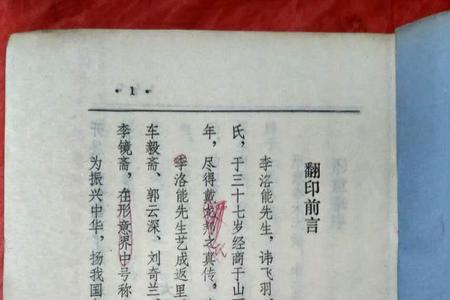 · 1 ·
翻印前言
李洛能先生，讳飞羽，
氏，于三十七岁经商于山西
年，尽得戴龙邦之真传。
李洛能先生艺成返里
车毅斋、郭云深、刘奇兰
李镜斋，在形意界中号称
为振兴中华，扬我国